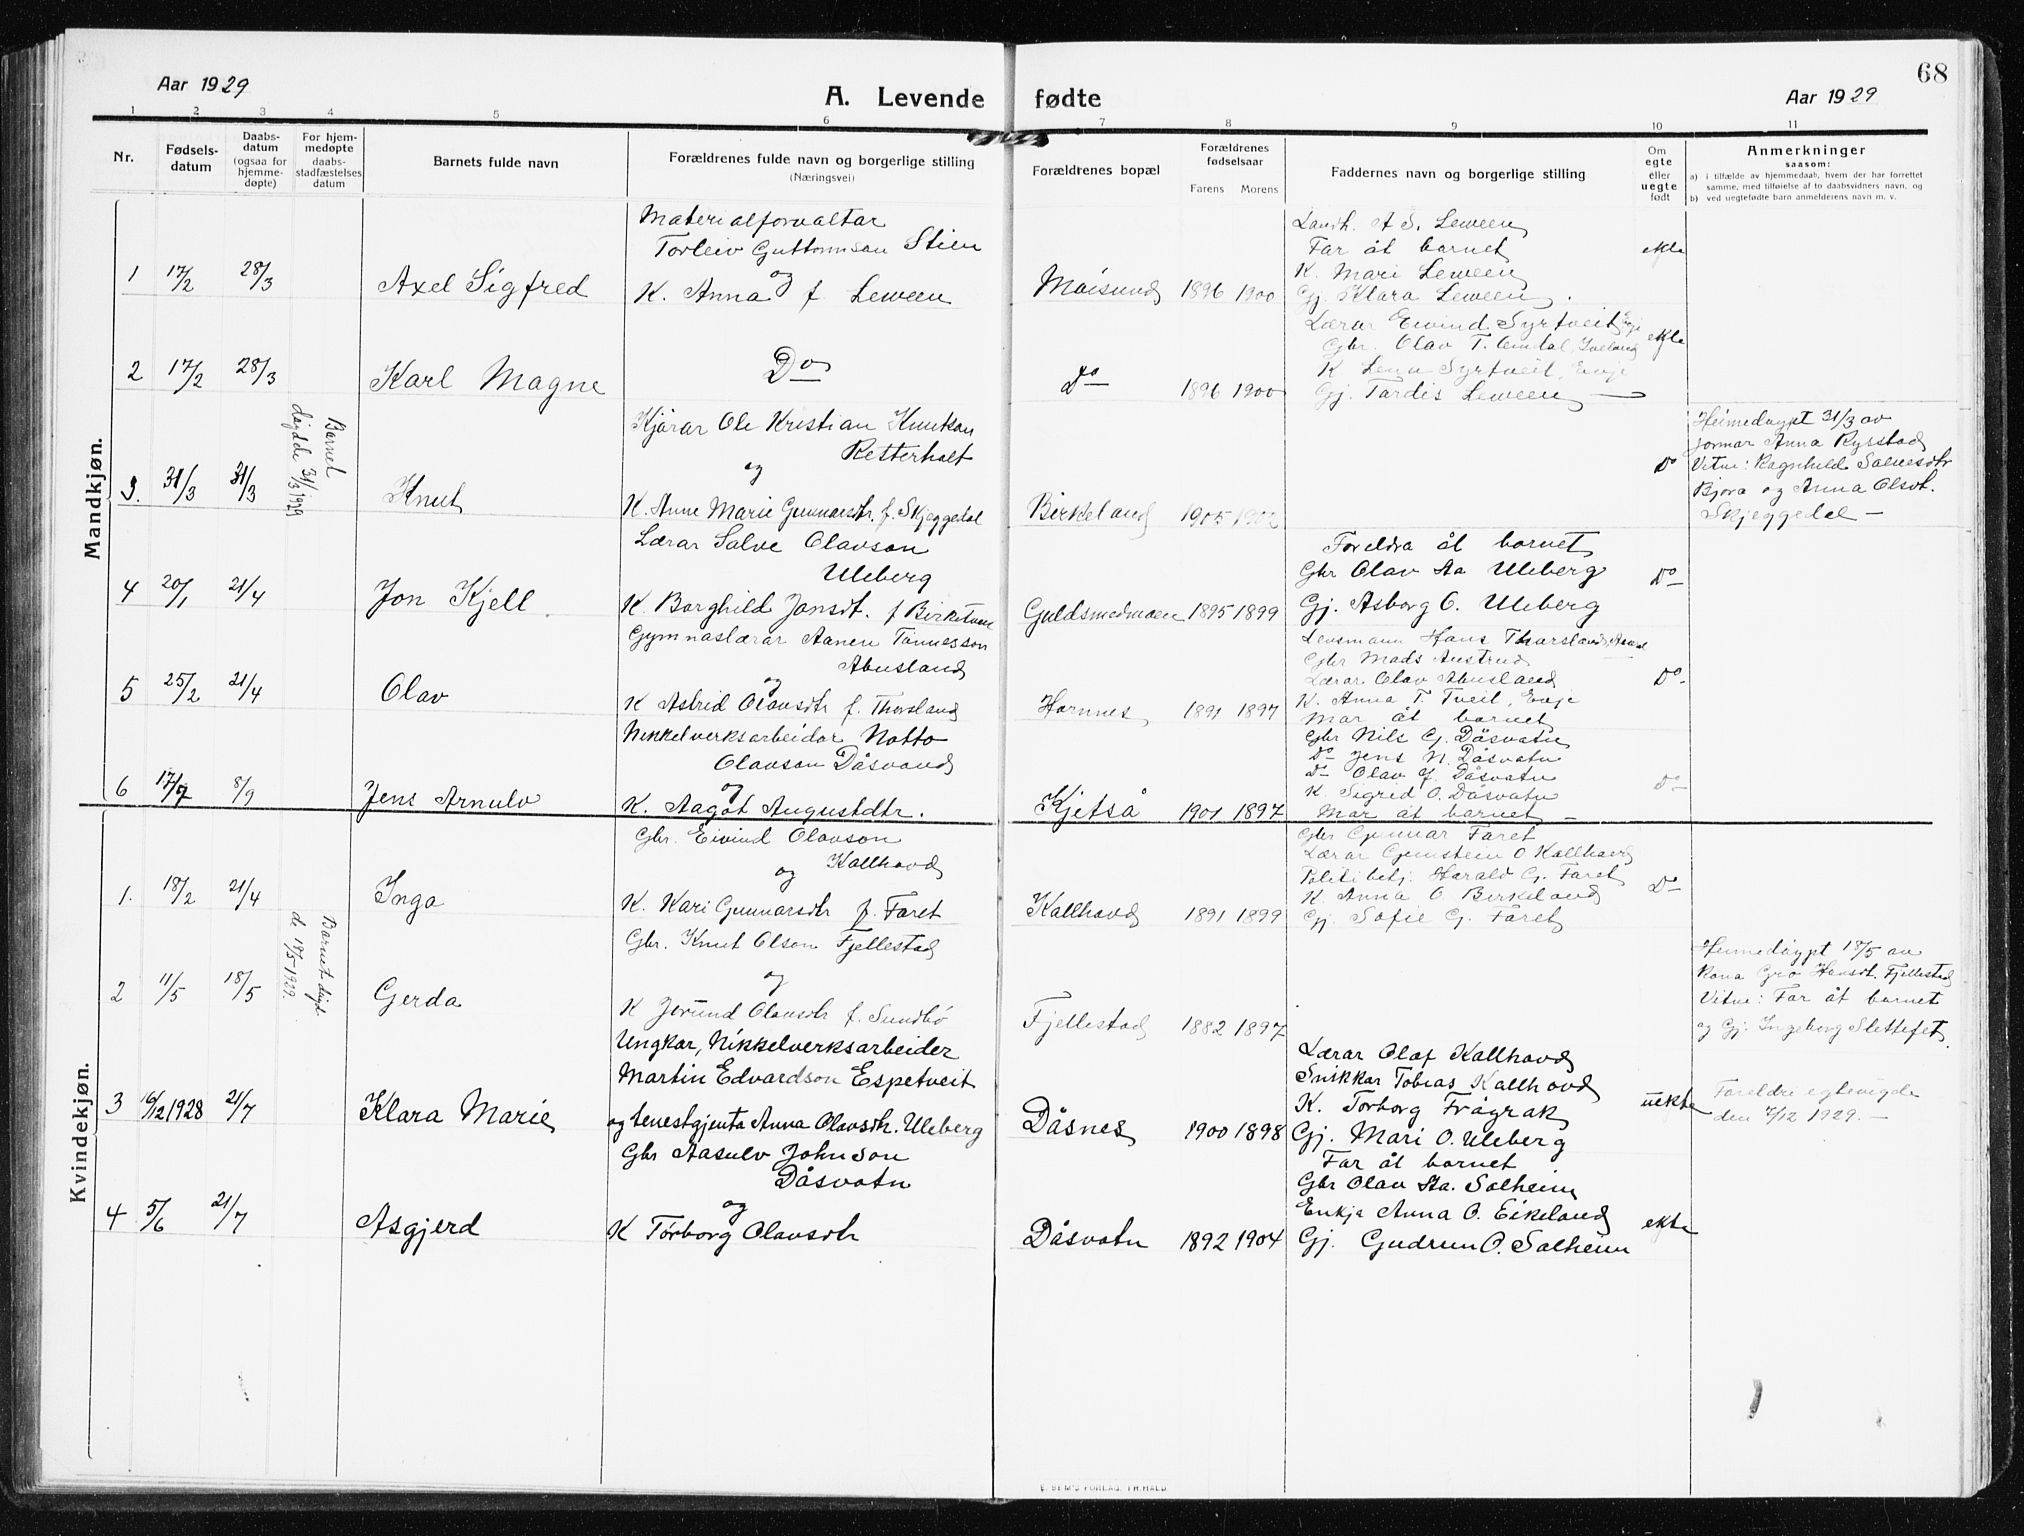 68
Aar 1929
A. Levende fødte
Aar 1929
1 2 3 4 5 6 7 8 9 10 11
Nr.
Fødsels-
datum
Daabs-
datum
(ogsaa for
hjemme-
døpte)
For hjem-
medøpte
daabs-
stadfæstelses
datum
Barnets fulde navn
Forældrenes fulde navn og borgerlige stilling
(Næringsvei)
Forældrenes bopæl
Forældrenes
fødselsaar
Farens Morens
Faddernes navn og borgerlige stilling
Om
egte
eller
uegte
født
Anmerkninger
saasom:
a) i tilfælde av hjemmedaab, hvem der har forrettet
samme, med tilføielse af to daabsvidners navn, og
b) ved uegtefødte barn anmelderens navn m. v.
Mandkjøn.
1 17/2 28/3 Axel Sigfred
Materialforvaltar
Torleiv Guttormson Stien
og
K. Anna f Leween
Moisund 1896 1900
Landh. A S. Leween
Far åt barnet
K. Mari Leween
Gj. Klara Leween.
ekte
2 17/2 28/3 Karl Magne
Do
Do 1896 1900
Lærar Eivind Syrtveit Evje
Gbr. Olav T. Omdal, Iveland
K Lena Syrtveit, Evje
Gj. Tardis Leween
ekte
3. 31/3 31/3
Barnet
døydde 31/3 1929
Knut
Kjørar Ole Kristian Knutson
Retterholt
og
K. Anne Marie Gunnarsdtr. f. Skjeggedal
Birkeland 1905 1902
Do
Heimedøypt 31/3 av
jormor Anna Rysstad
Vitne: Ragnhild Salvesdtr
Bjora og Anna Olsdt.
Skjeggedal —
4 20/1 21/4 Jon Kjell.
Lærar Salve Olavson
Uleberg
K. Borghild Jonsdt. f Birketveit
Guldsmedmoen 1895 1899
Foreldra åt barnet
Gbr Olav Aa Uleberg
Gj. Asborg O. Uleberg
Do
5 25/2 21/4 Olav
Gymnaslærar Aanen Tønnesson
Abusland
og
K Astrid Olavsdtr f. Thorsland
Hornnes 1891 1897
Lensmann Hans Thorsland,
Gbr Mads Austrud
Lærar Olav Abusland
K. Anna T. Tveit, Evje
Mor åt barnet
Do
6 17/7 8/9 Jens Arnulv
Nikkelverksarbeidar Notto
Olavson Dåsvand
og
K. Aagot Augustdtr.
Kjetså 1901 1897
Gbr Nils G. Dåsvatn
Do Jens N. Dåsvatn
Do Olav J. Dåsvatn
K. Sigrid O. Dåsvatn
Mor åt barnet —
Do
Kvindekjøn.
1. 18/2 21/4 Inga
Gbr. Eivind Olavson
Kallhovd
og
K. Kari Gunnarsdtr f. Faret
Kallhovd 1891 1899
Gbr Gunnar Faret
Lærar Gunstein O. Kallhovd
Politibetj. Harald G. Faret
K. Anna O. Birkeland
Gj. Sofie G. Faret
Do
2 11/5 18/5
Barnet døyd
de 18/5-1929.
Gerda
Gbr. Knut Olson Fjellestad
og
K Jorund Olavsdtr f. Sundbø
Fjellestad 1882 1897
Heimedøypt 18/5 av
Kona Gro Hansdt. Fjellestad
Vitne: Far åt barnet
og Gj. Ingeborg Slettefet.
3 16/12 1928 21/7 Klara Marie
Ungkar, Nikkelverksarbeider
Martin Edvardson Espetveit
og tenestgjenta Anna Olavsdtr. Uleberg
Dåsnes 1900 1898
Lærar Olaf Kallhovd
Snikkar Tobias Kallhovd
K. Torborg Frøgrak
Gj. Mari O. Uleberg
uekte
Foreldre egtevigde
den 7/12 1929. —
4 5/6 21/7 Asgjerd
Gbr Aasulv Johnson
Dåsvatn
og
K Torborg Olavsdtr
Dåsvatn 1892 1904
Far åt barnet
Gbr Olav Aa. Solheim
Enkja Anna O. Eikeland
Gj. Gudrun O. Solheim
ekte
E. SEM'S FORLAG, FR.HALD.